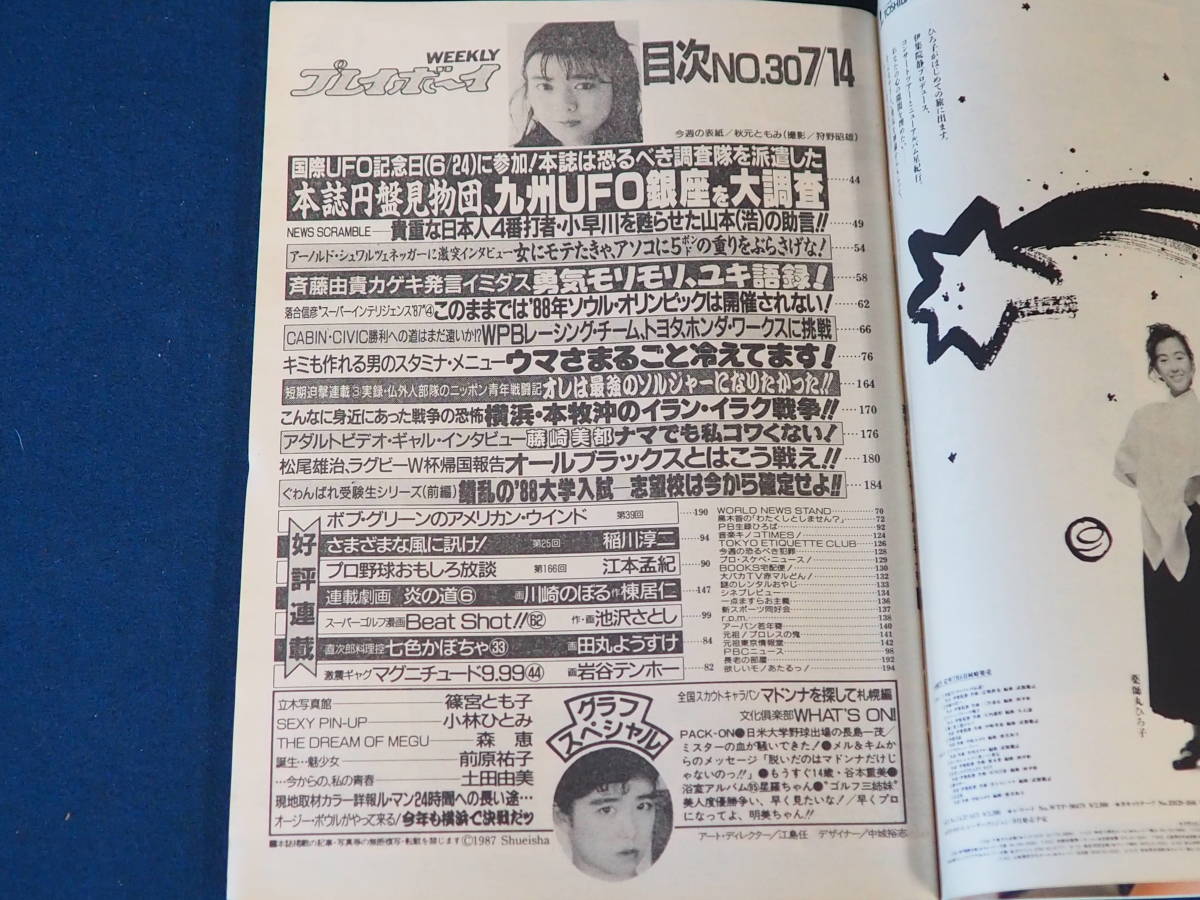 WEEKLY
プレイボーイ
目次NO.30 7/14
今週の表紙/秋元ともみ(撮影/狩野昭雄)
国際UFO記念日(6/24)に参加!本誌は恐るべき調査隊を派遣した
本誌円盤見物団、九州UFO銀座を大調査 44
NEWS SCRAMBLE 貴重な日本人4番打者・小早川を甦らせた山本(浩)の助言!! 49
アーノルド・シュワルツェネッガーに激突インタビュー 女にモテたきゃ、アソコに5ポンドの重りをぶらさげな! 54
斉藤由貴カゲキ発言イミダス 勇気モリモリ、ユキ語録! 58
落合信彦"スーパーインテリジェンス'87"④このままでは'88年ソウル・オリンピックは開催されない! 62
CABIN・CIVIC勝利への道はまだ遠いか!? WPBレーシング・チーム、トヨタ、ホンダ・ワークスに挑戦 66
キミも作れる男のスタミナ・メニュー ウマさまるごと冷えてます! 76
短期迫撃連載③実録・仏外人部隊のニッポン青年戦闘記 オレは最強のソルジャーになりたかった!! 164
こんなに身近にあった戦争の恐怖 横浜・本牧沖のイラン・イラク戦争!! 170
アダルトビデオ・ギャル・インタビュー 藤崎美都 ナマでも私コワくない! 176
松尾雄治、ラグビーW杯帰国報告 オールブラックスとはこう戦え!! 180
ぐわんばれ受験生シリーズ(前編) 錯乱の'88大学入試―志望校は今から確定せよ!! 184
好評連載
ボブ・グリーンのアメリカン・ウインド 第39回 190
さまざまな風に訊け! 第25回 稲川淳二 94
プロ野球おもしろ放談 第166回 江本孟紀 90
連載劇画 炎の道⑥ 画 川崎のぼる 作 棟居仁 147
スーパーゴルフ漫画 Beat Shot!! 62 作・画 池沢さとし 99
直次郎料理控 七色かぼちゃ 33 画 田丸ようすけ 84
激震ギャグ マグニチュード9.99 44 画 岩谷テンホー 82
WORLD NEWS STAND 70
黒木香の「わたくしとしません?」 72
PB生録ひろば 92
音楽キノコTIMES! 124
TOKYO ETIQUETTE CLUB 126
今週の恐るべき犯罪 128
プロ・スケベ・ニュース! 129
BOOKS宅配便! 130
大バカTV赤マルどん! 132
謎のレンタルおやじ 133
シネプレビュー 134
一点ますらお主義 136
新スポーツ同好会 137
r.p.m. 138
アーバン若年寄 140
元祖!プロレスの鬼 141
元祖東京情報堂 142
PBCニュース 98
長老の部屋 192
欲しいモノあたるっ! 194
立木写真館 篠宮とも子
SEXY PIN-UP 小林ひとみ
THE DREAM OF MEGU 森 恵
誕生…魅少女 前原祐子
…今からの、私の青春 土田由美
現地取材カラー詳報 ル・マン24時間への長い途…
オージー・ボウルがやって来る! 今年も横浜で決戦だッ
グラフスペシャル
全国スカウトキャラバン マドンナを探して札幌編
文化倶楽部 WHAT'S ON!!
PACK-ON●日米大学野球出場の長島一茂/
ミスターの血が騒いできた!●メル&キムか
らのメッセージ「脱いだのはマドンナだけじ
ゃないのっ!!」●もうすぐ14歳・谷本重美●
浴室アルバム 星羅ちゃん●"ゴルフ三姉妹"
美人度優勝争い、早く見たいな!/早くプロ
になってよ、明美ちゃん!!
アート・ディレクター/江島任 デザイナー/中城裕志
■本誌掲載の記事・写真等の無断複写・転載を禁じます ©1987 Shueisha
ひろ子がはじめての旅に出ます。
伊集院静プロデュース、
コンサートツアーとニューアルバム星紀行。
薬師丸ひろ子